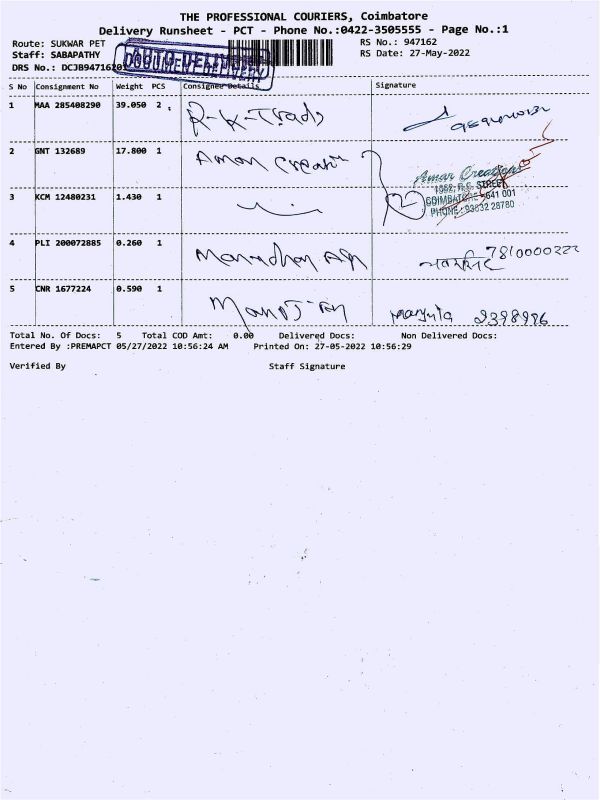 THE PROFESSIONAL COURIERS, Coimbatore
Delivery Runsheet - PCT - Phone No.:0422-3505555 - Page No.:1
Route: SUKWAR PET RS No.: 947162
Staff: SABAPATHY RS Date: 27-May-2022
DRS No.: DCJB947162
S No Consignment No Weight PCS Consignee Details Signature
1 MAA 285408290 39.050 2 R-K-Trads
2 GNT 132689 17.800 1 Aman Creation
Amar Creations
STREET
COIMBATORE-641 001
PHONE: 93632 28780
3 KCM 12480231 1.430 1
4 PLI 200072885 0.260 1 7810000222
5 CNR 1677224 0.590 1 Manju
Total No. Of Docs: 5 Total COD Amt: 0.00 Delivered Docs: Non Delivered Docs:
Entered By :PREMAPCT 05/27/2022 10:56:24 AM Printed On: 27-05-2022 10:56:29
Verified By Staff Signature